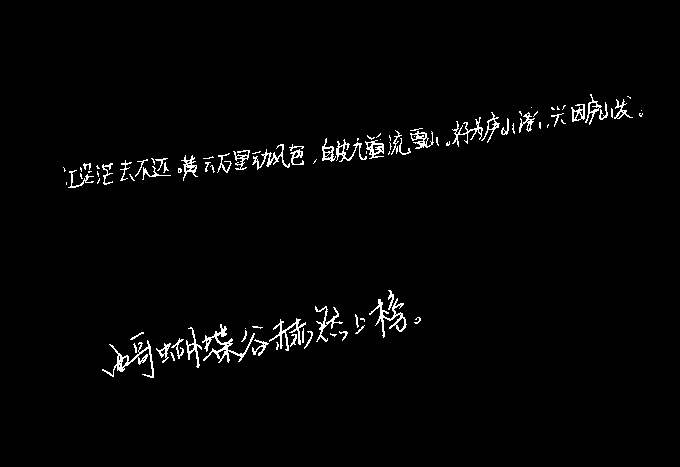 江茫茫去不还。黄云万里动风色，白波九道流雪山。好为庐山谣，兴因庐山发。
哥蝴蝶谷赫然上榜。